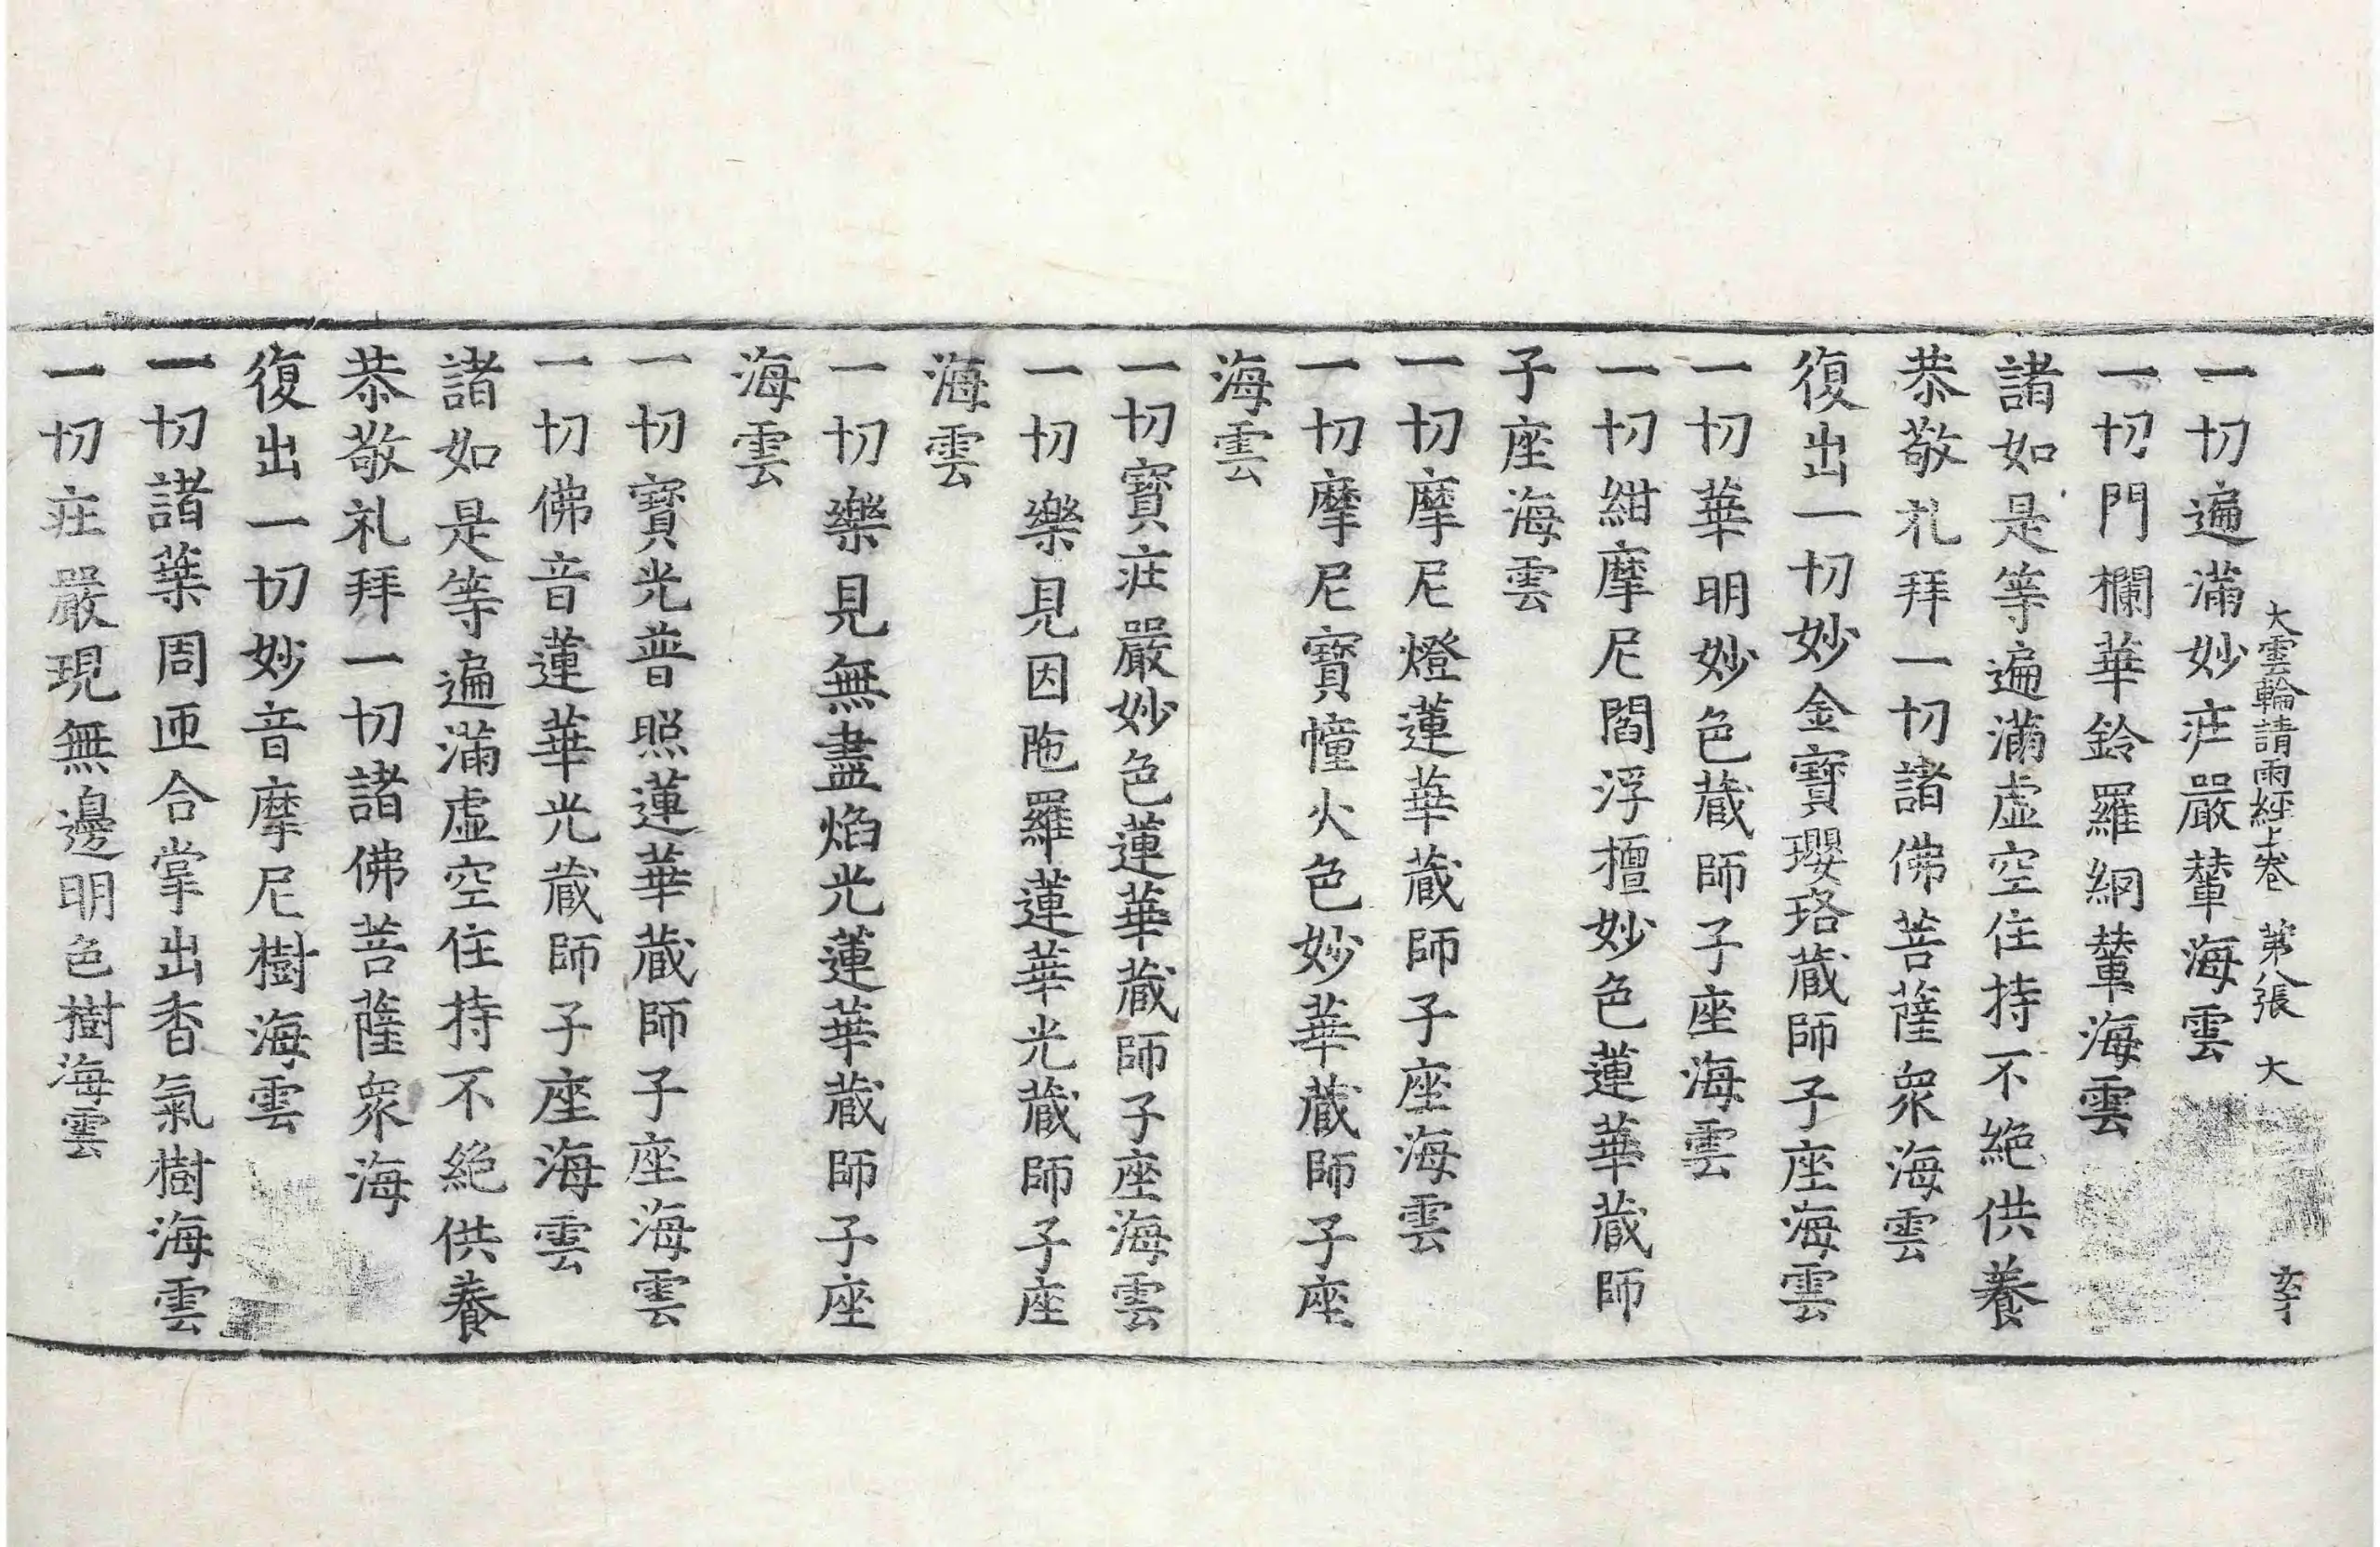 大雲輪請雨經上卷 第八張 大
一切遍滿妙庄嚴輦海雲
一切門欄華鈴羅網輦海雲
諸如是等遍滿虛空住持不絕供養
恭敬礼拜一切諸佛菩薩衆海雲
復出一切妙金寶瓔珞蔵師子座海雲
一切華明妙色蔵師子座海雲
一切紺摩尼閻浮檀妙色蓮華蔵師
子座海雲
一切摩尼燈蓮華蔵師子座海雲
一切摩尼寶幢火色妙華蔵師子座
海雲
一切寶庄嚴妙色蓮華蔵師子座海雲
一切樂見因陁羅蓮華光蔵師子座
海雲
一切樂見無盡焰光蓮華蔵師子座
海雲
一切寶光普照蓮華蔵師子座海雲
一切佛音蓮華光蔵師子座海雲
諸如是等遍滿虛空住持不絕供養
恭敬礼拜一切諸佛菩薩衆海
復出一切妙音摩尼樹海雲
一切諸葉周匝合掌出香氣樹海雲
一切庄嚴現無邊明色樹海雲